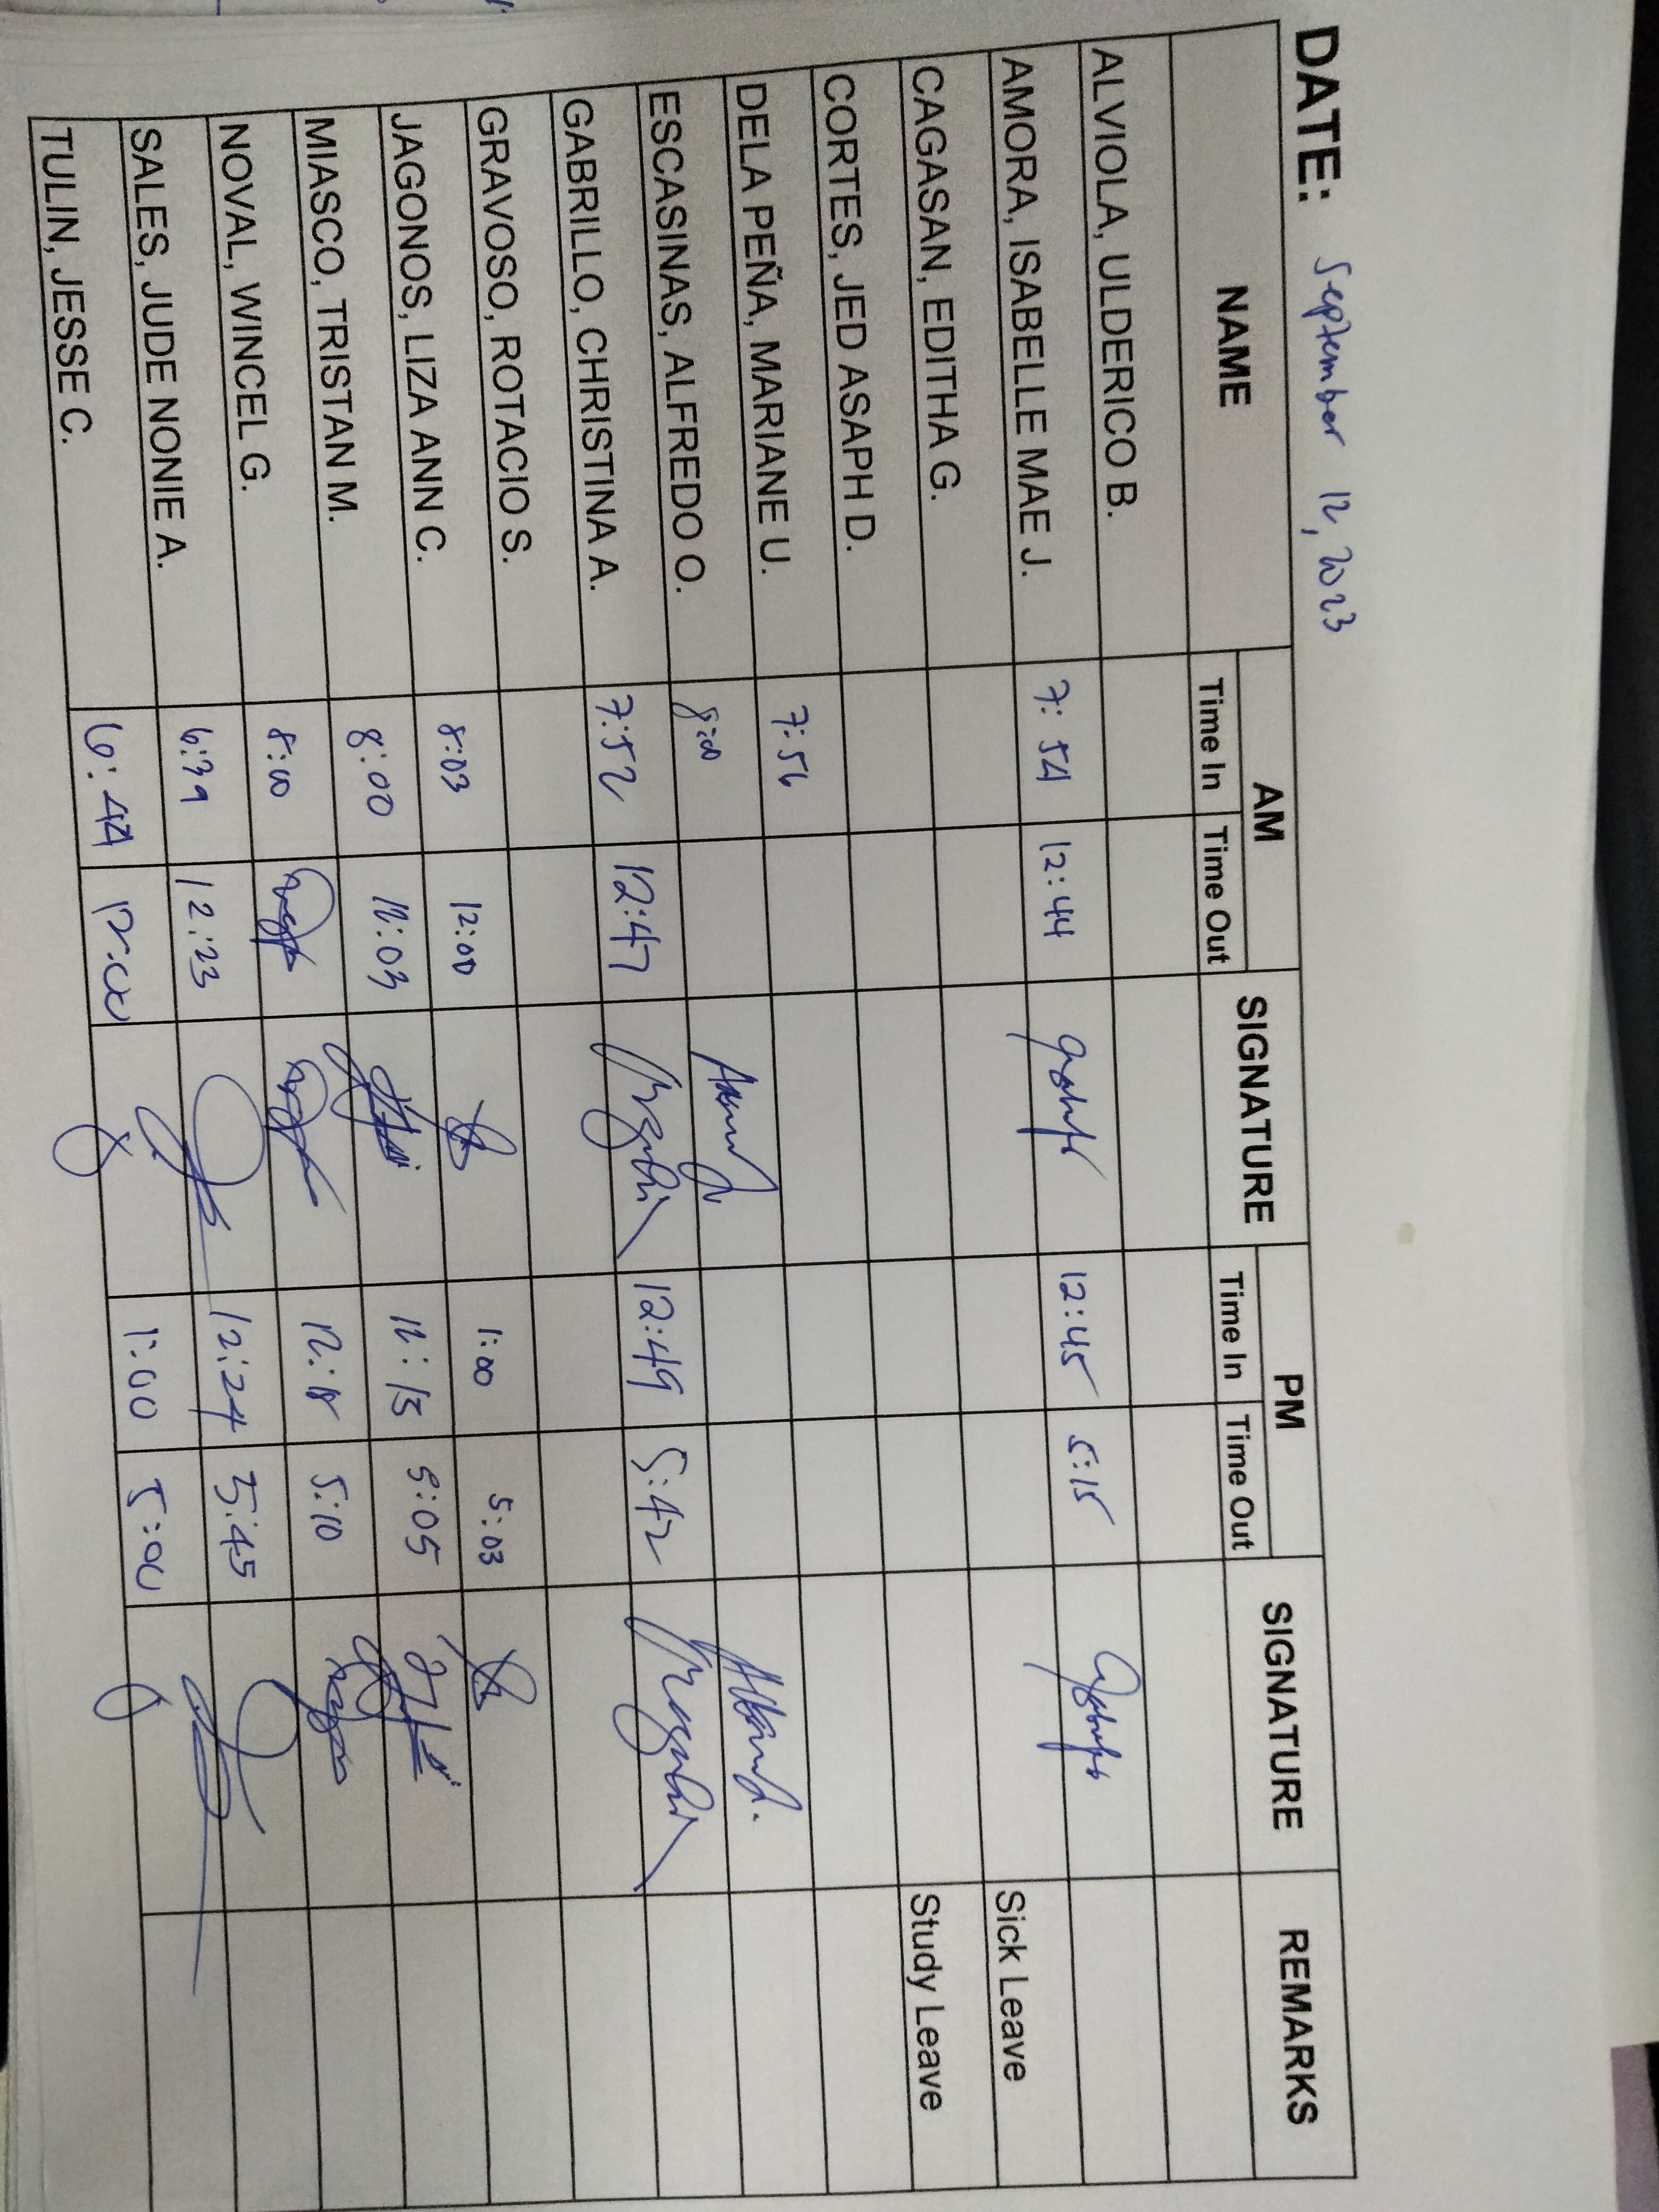 DATE: September 12, 2023
NAME AM SIGNATURE PM SIGNATURE REMARKS
Time In Time Out Time In Time Out
ALVIOLA, ULDERICO B.
AMORA, ISABELLE MAE J. 7:54 12:44 12:45 5:15
CAGASAN, EDITHA G. Sick Leave
CORTES, JED ASAPH D. Study Leave
DELA PEÑA, MARIANE U. 7:56
ESCASINAS, ALFREDO O. 8:00
GABRILLO, CHRISTINA A. 7:52 12:47 12:49 5:42
GRAVOSO, ROTACIO S.
JAGONOS, LIZA ANN C. 8:03 12:00 1:00 5:03
MIASCO, TRISTAN M. 8:00 12:03 12:13 5:05
NOVAL, WINCEL G. 8:00 12:18 5:10
SALES, JUDE NONIE A. 6:39 12:23 12:24 5:45
TULIN, JESSE C. 6:44 12:00 1:00 5:00